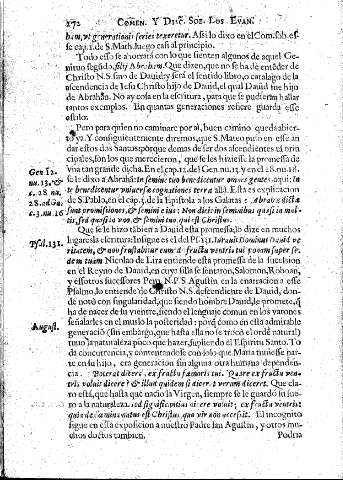 272 COMEN. Y DISC. SOB. LOS EVAN.
ham, vt generationis series texeretur. Assi lo dixo en el Com. sob. es-
se cap. 1. de S. Math. luego casi al principio.
Todo esso se ahorrará con lo que sienten algunos de aquel Ge-
nitiuo segũdo, filij Abraham. Que dizen, que no se ha de entẽder de
Christo N.S. sino de Dauid: y será el sentido libro, o catalago de la
ascendencia de Iesu Christo hijo de Dauid, el qual Dauid fue hijo
de Abrahã. No ay cosa en la escritura, para que se pudierãn hallar
tantos exemplos. En quantas generaciones refiere guarda esse
estilo.
Pero para quien no caminare por aî, buen camino queda abier-
to ya. Y consiguientemente diremos, que S. Mateo puso en esse an
dar estos dos Santos: porque demas de ser dos ascendientes tã prin
cipales, son los que merecieron, que se les hiziesse la promessa de
vna tan grande dicha. En el cap. 12. del Gen. nu. 13. y en el 28. nu. 18.
se le dixo a Abrahã: In semine tuo benedicentur omnes gentes: aquî: In
te benedicentur vniuersæ cognationes terræ allî. Esta es explicacion
de S. Pablo, en el cap. 3. de la Epistola a los Galatas: Abrahæ dictæ
sunt promissiones, & semini eius: Non dicit: in seminibus quasi in mul-
tis, sed quasi in vno, & semini tuo qui est Christus.
Gen 12.
nu. 13. &
c. 28. nu.
c. 3. nu. 16
Que se le hizo tãbien a Dauid esta promessa, lo dize en muchos
lugares la escritura: Insigne es el del Ps. 131. Iurauit Dominus Dauid ve
ritatem, & non frustrabitur eum: de fructu ventris tui ponam super se-
dem tuam Nicolao de Lira entiende esta promessa de la sucession
en el Reyno de Dauid, en cuya silla se sentaron, Salomon, Roboan,
y essotros sucessores Pero N.P.S Agustin en la enarracion a esse
Psalmo, la entiende de Christo N.S. descendiente de Dauid, don-
de notô con singularidad, que siendo hombre Dauid, le promete, q̃
ha de nacer de su vientre, siendo el lenguaje comun en los varones
señalarles en el muslo la posteridad: porq̃ como en esta admirable
generaciõ (sin embargo, que hasta ella no se trocó el ordẽ natural)
tuuo la naturaleza poco que hazer, supliendo el Espiritu Santo. To
da concurrencia, y contentandose con solo que Maria tuuiesse par-
te en su hijo, era generacion sin alguna otra humana dependen-
cia. Poterat dicere, ex fructu femoris tui. Quare ex fructu ven-
tris voluit dicere? & illud quidem si diceret verum diceret. Que cla-
ro està, que hasta que nacio la Virgen, siempre se le guardò su fue-
ro a la naturaleza. sed significantius dicere voluit; ex fructu ventris:
quia de fœmina natus est Christus, quo vir non accessit. El incognito
sigue en essa exposicion a nuestro Padre san Agustin, y otros mu-
chos doctos tambien. Podria
Psal. 131.
August.